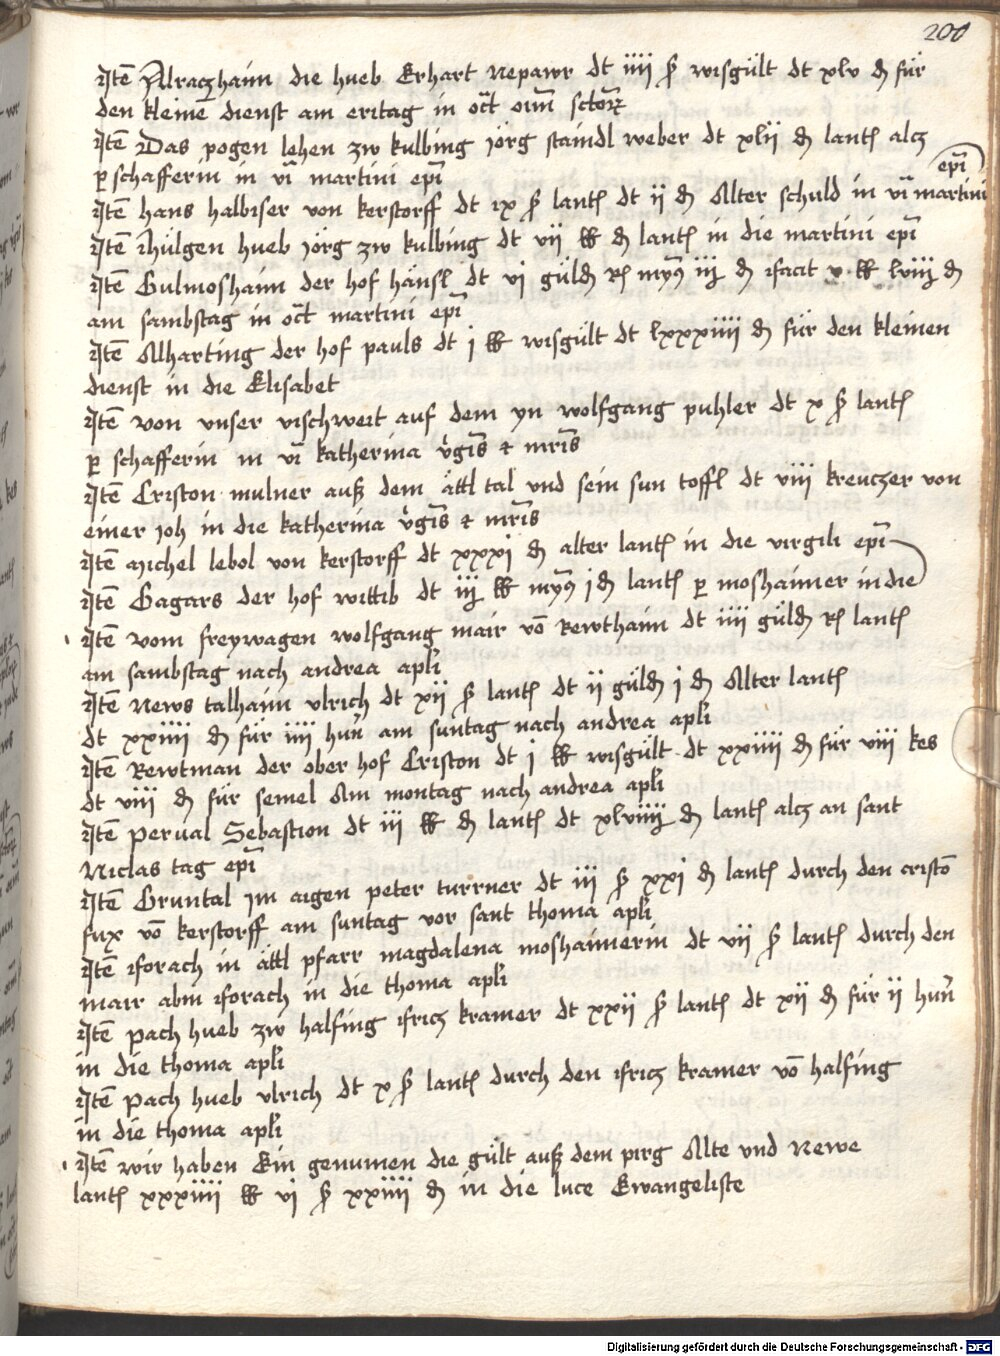 200
Itē Alraczhaim die hueb Erhart Nepawr dt iiii ß wisgült dt xlv ₰ für
den kleinē dienst am eritag in oct oīm sctoꝝ
Itē Das pogen lehen zw kulbing Jörg staindl weber dt xlij ₰ lantꝭ alcz
ꝑ schafferin in vī martini epī
Itē hans halbiser von kerstorff dt ix ß lantꝭ dt ij ₰ Alter schuld in vī martini epī
Itē hülgen hueb Jörg zw kulbing dt vij ℔ ₰ lantꝭ in die martini epī
Itē Gulmoshaim der hof hänsl dt vj güldꝭ Rꝭ myꝯ iij ₰ facit v ℔ lviij ₰
am sambstag in oct martini epī
Itē Alharting der hof pauls dt j ℔ wisgült dt lxxxiiii ₰ für den kleinen
dienst in die Elisabet
Itē von vnser vischweit auf dem yn wolfgang puhler dt x ß lantꝭ
ꝑ schafferin in vī katherina vgīs et mrīs
Itē Criston mulner auß dem ättl tal vnd sein sun toffl dt viii kreuczer von
einer Joh in die katherina vgīs et mrīs
Itē Michel lebol von kerstorff dt xxxj ₰ alter lantꝭ in die virgili epī
Itē Gagars der hof wittib dt iij ℔ myꝯ j ₰ lantꝭ ꝑ moshaimer in die
Itē vom freywagen wolfgang mair vō Rewthaim dt iiii güldꝭ Rꝭ lantꝭ
am sambstag nach andrea apłi
Itē News talhaim vlrich dt xij ß lantꝭ dt ij güldꝭ j ₰ Alter lantꝭ
dt xxiiii ₰ für iiii hun am suntag nach andrea apłi
Itē Rewtman der ober hof Criston dt j ℔ wisgült dt xxiiii ₰ für viii kes
dt viii ₰ für semel Am montag nach andrea apłi
Itē perual Sebastion dt iii ℔ ₰ lantꝭ dt xlviiij ₰ lantꝭ alcz an sant
Niclas tag epī
Itē Gruntal Im aigen peter turrner dt iii ß xxj ₰ lantꝭ durch den cristō
fux vō kerstorff am suntag vor sant thoma apłi
Itē forach in ättl pfarr magdalena moshaimerin dt vij ß lantꝭ durch den
mair abm forach in die thoma apłi
Itē pach hueb zw halfing fricz kramer dt xxij ß lantꝭ dt xij ₰ für ij hun
in die thoma apłi
Itē pach hueb vlrich dt x ß lantꝭ durch den fricz kramer vō halfing
in die thoma apłi
Itē wir haben Ein genumen die gült auß dem pirg Alte vnd Newe
lantꝭ xxxiiii ℔ vj ß xxiiii ₰ in die luce Ewangeliste
Digitalisierung gefördert durch die Deutsche Forschungsgemeinschaft - DFG